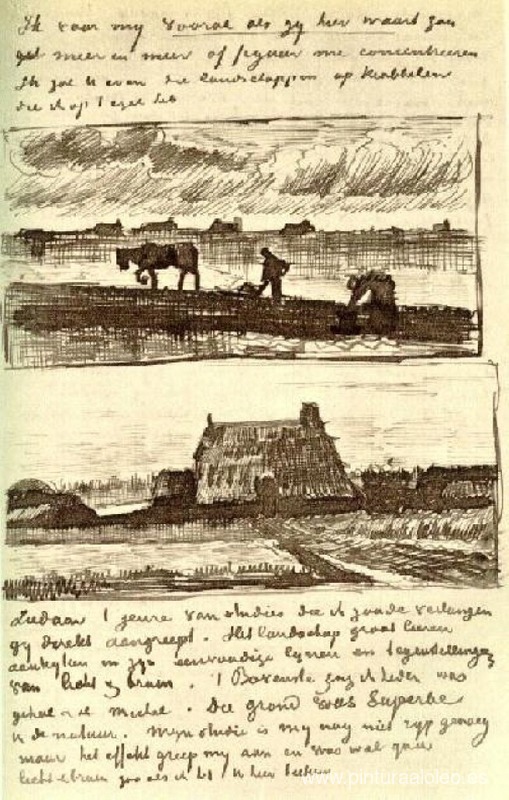 Ik voor my vooral als gy hier waart zou
gaf meer en meer of figuur me concentreeren
Ik zal U even de landschappen op krabbelen
die ik op 't ezel heb
Ziedaar 't genre van studies die ik zoude verlangen
gy direkt aangreept. Het landschap groot leeren
aankyken in zyn eenvoudige lynen en tegenstellingen
van licht & bruin. 't Bovenste zag ik heden was
geheel Michel. Die grond was Superbe
in de natuur. Myn studie is my nog niet ryp genoeg
maar het effekt greep my aan en was wel qua
licht & bruin zoo als ik 't U hier
www.pinturasaloleo.es